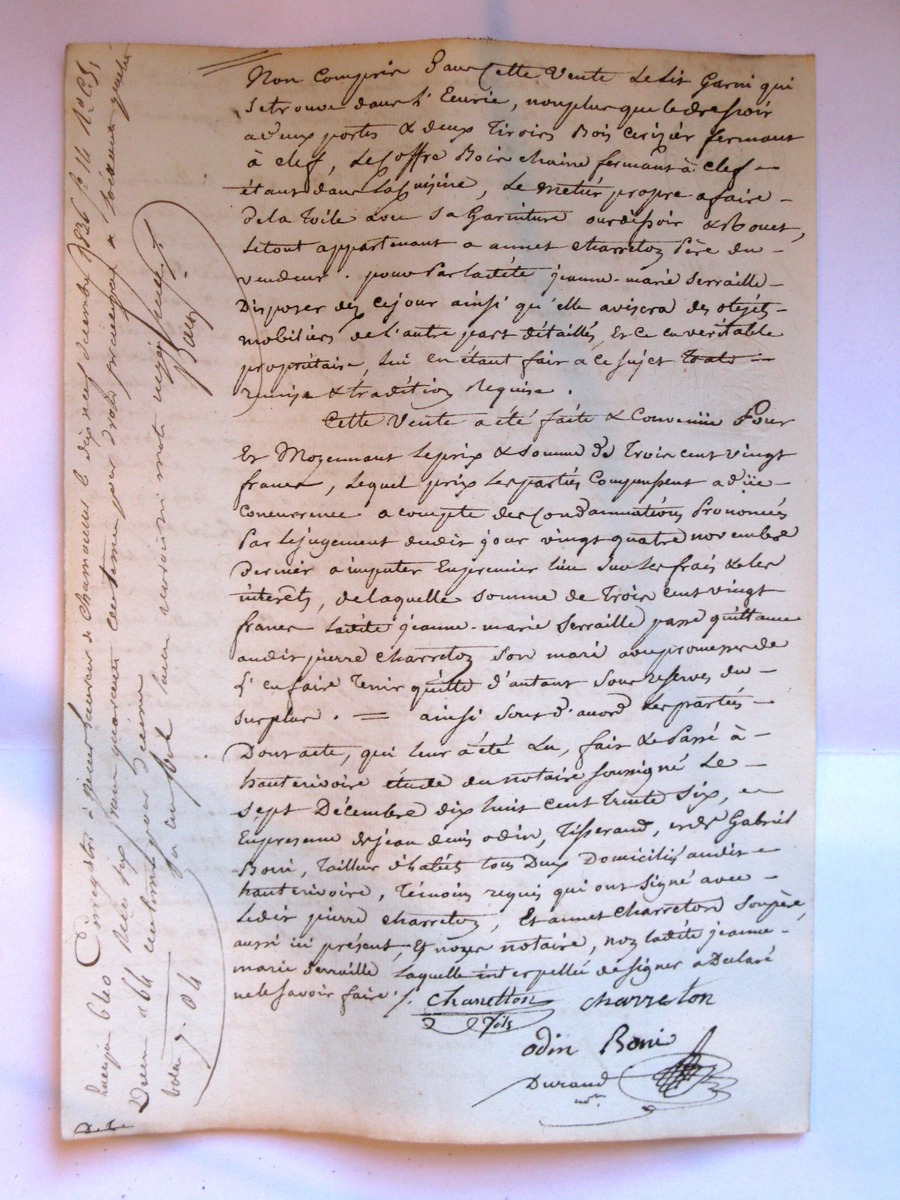 Non Compris Dans Cette Vente Le Lit Garni qui
Se trouve dans l'Ecurie, non plus que le dressoir
a deux portes & deux Tiroirs Bois Cerizier fermant
à clef, Le Coffre Bois chaine fermant à clef =
étant dans La Cuisine, Le metier propre a faire -
De la Toile avec Sa Garniture ourdissoir & Rouet,
Le tout appartenant a annet Charreton Père du -
vendeur. pour Par Ladite jeanne-marie Serraille -
Disposer dez cejour ainsi qu'elle avisera des objets -
mobiliers de l'autre part détaillés, Et ce en véritable
propriétaire, lui en étant fait a ce sujet toute =
remise & tradition Requise.
Cette Vente a été faite & Convenüe Pour
Et Moyennant Le prix & Somme de Trois cent vingt
francs, Lequel prix Les parties Compensent a düe -
Concurrence a compte des Condamnations Prononcés
Par Le jugement dudit jour vingt quatre novembre
Dernier a imputer En premier lieu Sur Les frais & Les
interets, de laquelle Somme de Trois cent vingt
francs Ladite jeanne-marie Serraille passe quittance
audit pierre Charreton Son mari avec promesse de
L'en faire Tenir quitte d'autant Sous reserves du -
surplus. = ainsi Sont d'accord Les parties -
Dont acte, qui leur a été Lu, fait & Passé à -
hauterivoire étude du notaire Soussigné Le -
Sept Décembre dix huit cent trente Six, =
En presence de jean denis odin, Tisserand, & de Gabriel
Boni, Tailleur d'habits tous Deux Domiciliés audit =
hauterivoire, Témoins requis qui ont Signé avec -
Ledit pierre Charreton, Et annet Charreton Son père,
aussi ici présent, Et nous notaire, non ladite jeanne -
marie Serraille Laquelle interpellée de Signer a Declaré
ne le Savoir faire /.
Charretton Charreton
fils
odin Boni
Durand
nore
Enregistré à Saint Laurent de Chamousset le dix neuf décembre 1836 fo 14 Ro C 5,
Reçu six francs quarante centimes pour droit principal &
Decime 64 centimes pour Decime
Reçu 6 40
Decime 64
total 7. 04